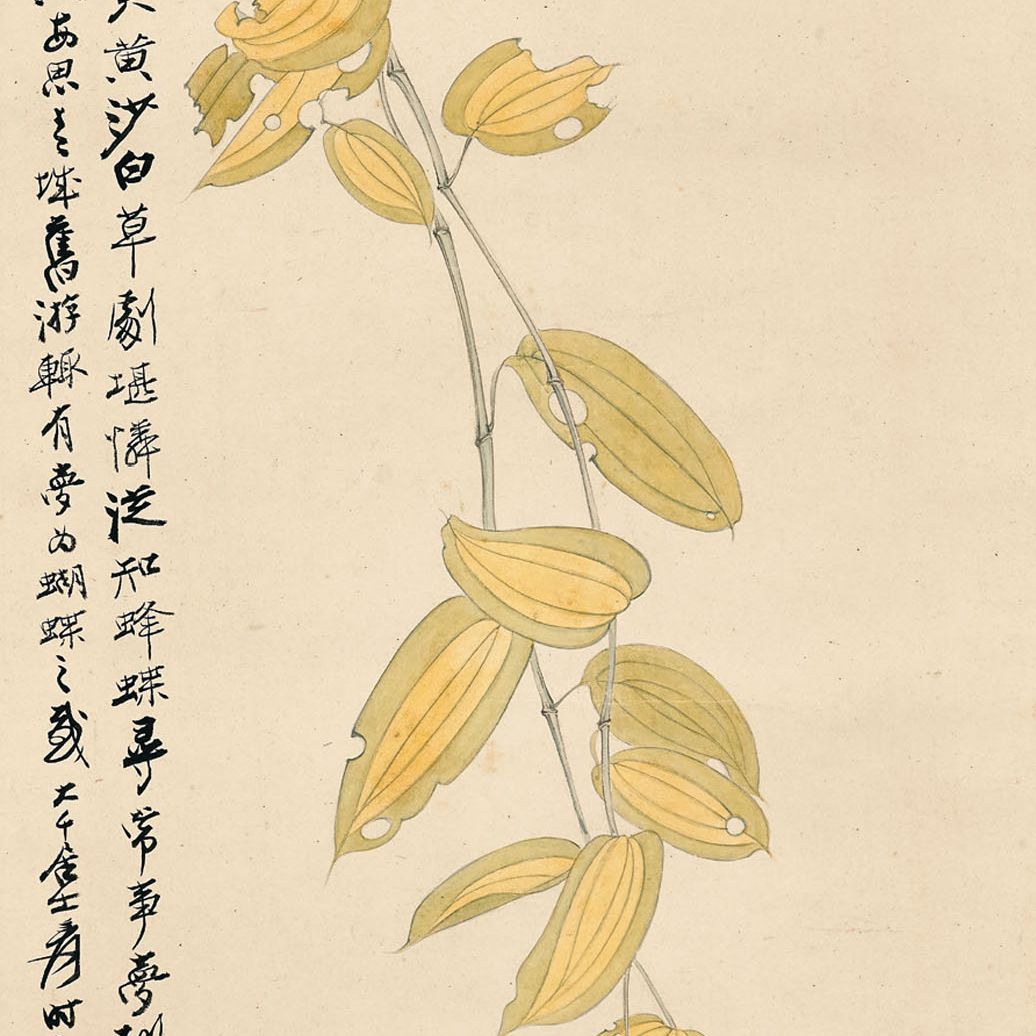 黄沙白草劇堪憐從知蜂蝶尋常事夢
每思青城舊游輒有夢為蝴蝶之感大千居士爰时